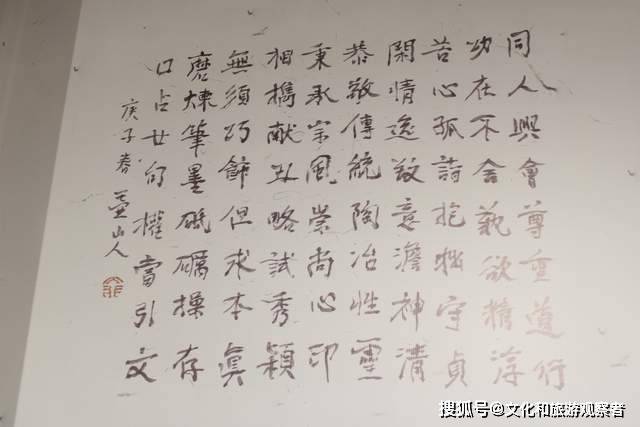 同人興會尊重道行
功在不舍藝欲精淳
苦心孤詣抱守貞
閑情逸致意澹神清
恭敬傳統陶冶性靈
秉承宗風崇尚心印
相攜献丑略試秀穎
無須巧飾但求本真
磨煉筆墨砥礪操存
口占廿句權當引文
庚子春 山人
搜狐号@文化和旅游观察者